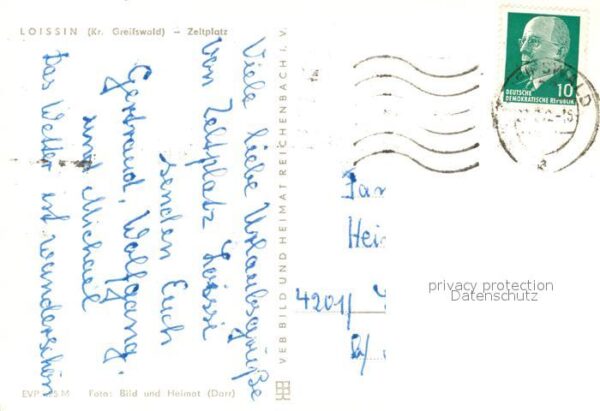 LOISSIN (Kr. Greifswald) – Zeltplatz
Viele liebe Urlaubsgrüße
vom Zeltplatz Loissi
senden Euch
Gertraud, Wolfgang,
und Michael
Das Wetter ist wunderschön
EVP M Foto: Bild und Heimat (Darr)
VEB BILD UND HEIMAT REICHENBACH I. V.
10
DEUTSCHE
DEMOKRATISCHE REPUBLIK
Fam
Hei
4201/
privacy protection
Datenschutz